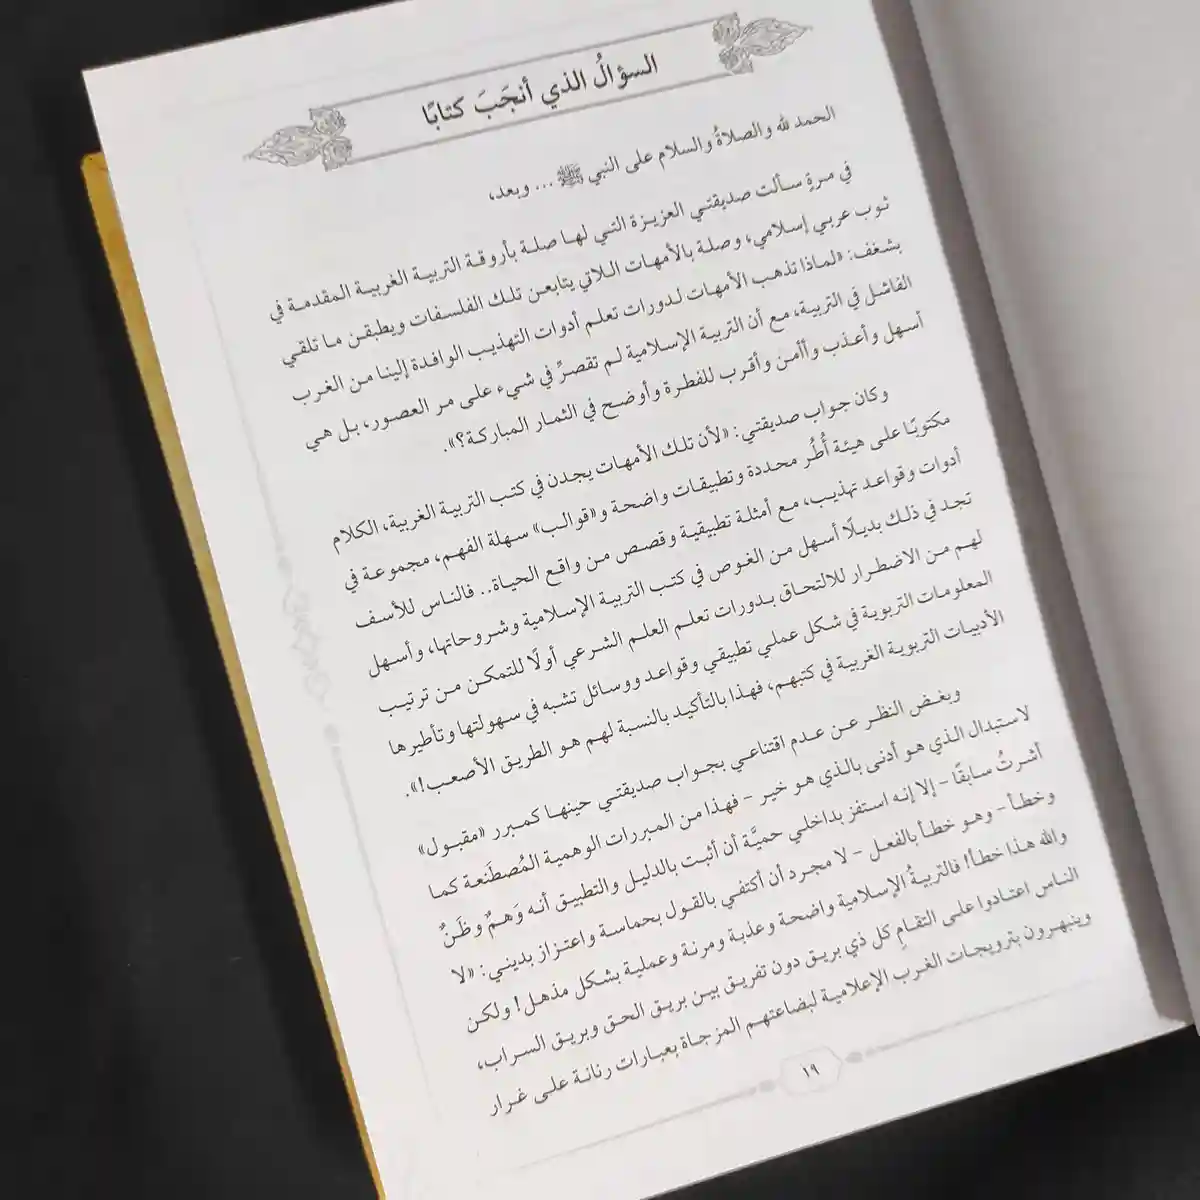 السؤالُ الذي أنجَبَ كتابًا
الحمد لله والصلاةُ والسلام على النبي ﷺ ... وبعد،
في مرةٍ سألت صديقتي العزيزة التي لها صلة بأروقة التربية الغربية المقدمة في
ثوب عربي إسلامي، وصلة بالأمهات اللاتي يتابعن تلك الفلسفات ويطبقن ما تلقي
بشغف: «لماذا تذهب الأمهات لدورات تعلم أدوات التهذيب الوافدة إلينا من الغرب
الفاشل في التربية، مع أن التربية الإسلامية لم تقصرِّ في شيء على مر العصور، بل هي
أسهل وأعذب وأأمن وأقرب للفطرة وأوضح في الثمار المباركة؟».
وكان جواب صديقتي: «لأن تلك الأمهات يجدن في كتب التربية الغربية، الكلام
مكتوبًا على هيئة أُطُر محددة وتطبيقات واضحة و«قوالب» سهلة الفهم، مجموعة في
أدوات وقواعد تهذيب، مع أمثلة تطبيقية وقصص من واقع الحياة.. فالناس للأسف
تجد في ذلك بديلًا أسهل من الغوص في كتب التربية الإسلامية وشروحاتها، وأسهل
لهم من الاضطرار للالتحاق بدورات تعلم العلم الشرعي أولًا للتمكن من ترتيب
المعلومات التربوية في شكل عملي تطبيقي وقواعد ووسائل تشبه في سهولتها وتأطيرها
الأدبيات التربوية الغربية في كتبهم، فهذا بالتأكيد بالنسبة لهم هو الطريق الأصعب!».
وبغض النظر عن عدم اقتناعي بجواب صديقتي حينها كمبرر «مقبول»
لاستبدال الذي هو أدنى بالذي هو خير – فهذا من المبررات الوهمية المُصطَنَعة كما
أشرتُ سابقًا – إلا إنه استفز بداخلي حميَّة أن أثبت بالدليل والتطبيق أنه وَهمٌ وظَنٌ
وخطأ – وهو خطأ بالفعل – لا مجرد أن أكتفي بالقول بحماسة واعتزاز بديني: «لا
والله هذا خطأ! فالتربيةُ الإسلامية واضحة وعذبة ومرنة وعملية بشكل مذهل! ولكن
الناس اعتادوا على التقامِ كل ذي بريق دون تفريق بين بريق الحق وبريق السراب،
وينبهرون بترويجات الغرب الإعلامية لبضاعتهم المزجاة بعبارات رنانة على غرار
١٩